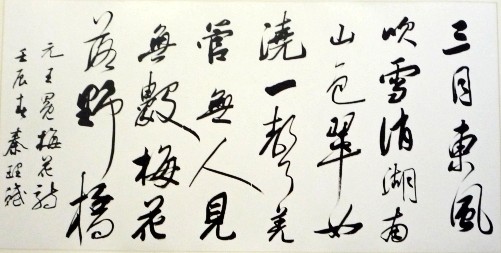 三月東風
吹雪消湖南
山色翠如
澆一聲羌
管無人見
無數梅花
落野橋
元王冕梅花詩
壬辰春秦理斌